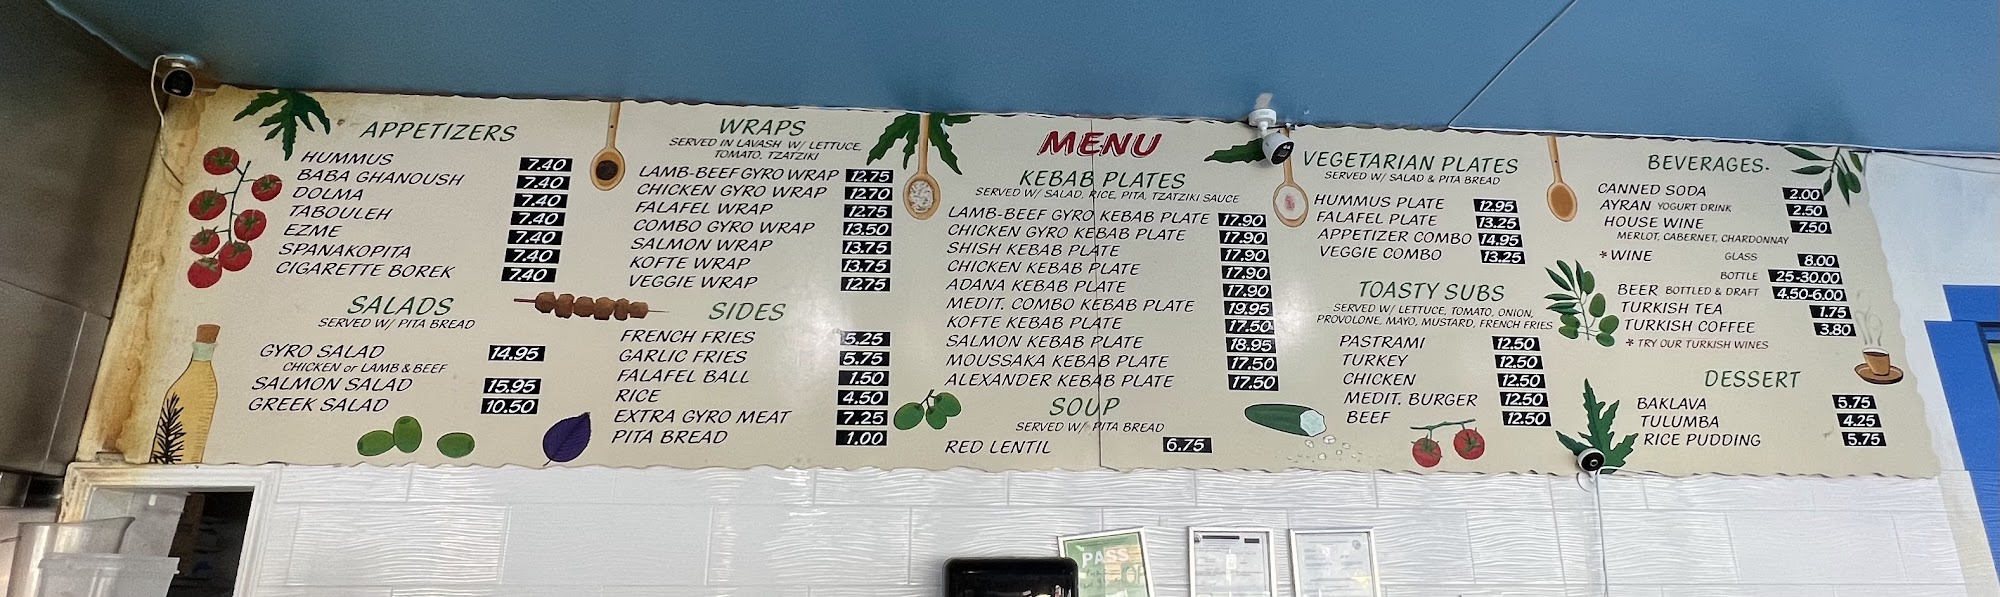 APPETIZERS
HUMMUS 7.40
BABA GHANOUSH 7.40
DOLMA 7.40
TABOULEH 7.40
EZME 7.40
SPANAKOPITA 7.40
CIGARETTE BOREK 7.40
SALADS
SERVED W/ PITA BREAD
GYRO SALAD 14.95
CHICKEN or LAMB & BEEF
SALMON SALAD 15.95
GREEK SALAD 10.50
WRAPS
SERVED IN LAVASH W/ LETTUCE,
TOMATO, TZATZIKI
LAMB-BEEF GYRO WRAP 12.75
CHICKEN GYRO WRAP 12.70
FALAFEL WRAP 12.75
COMBO GYRO WRAP 13.50
SALMON WRAP 13.75
KOFTE WRAP 13.75
VEGGIE WRAP 12.75
SIDES
FRENCH FRIES 5.25
GARLIC FRIES 5.75
FALAFEL BALL 1.50
RICE 4.50
EXTRA GYRO MEAT 7.25
PITA BREAD 1.00
MENU
KEBAB PLATES
SERVED W/ SALAD, RICE, PITA, TZATZIKI SAUCE
LAMB-BEEF GYRO KEBAB PLATE 17.90
CHICKEN GYRO KEBAB PLATE 17.90
SHISH KEBAB PLATE 17.90
CHICKEN KEBAB PLATE 17.90
ADANA KEBAB PLATE 17.90
MEDIT. COMBO KEBAB PLATE 19.95
KOFTE KEBAB PLATE 17.50
SALMON KEBAB PLATE 18.95
MOUSSAKA KEBAB PLATE 17.50
ALEXANDER KEBAB PLATE 17.50
SOUP
SERVED W/ PITA BREAD
RED LENTIL 6.75
VEGETARIAN PLATES
SERVED W/ SALAD & PITA BREAD
HUMMUS PLATE 12.95
FALAFEL PLATE 13.25
APPETIZER COMBO 14.95
VEGGIE COMBO 13.25
TOASTY SUBS
SERVED W/ LETTUCE, TOMATO, ONION,
PROVOLONE, MAYO, MUSTARD, FRENCH FRIES
PASTRAMI 12.50
TURKEY 12.50
CHICKEN 12.50
MEDIT. BURGER 12.50
BEEF 12.50
BEVERAGES.
CANNED SODA 2.00
AYRAN YOGURT DRINK 2.50
HOUSE WINE 7.50
MERLOT, CABERNET, CHARDONNAY
*WINE GLASS 8.00
BOTTLE 25-30.00
BEER BOTTLED & DRAFT 4.50-6.00
TURKISH TEA 1.75
TURKISH COFFEE 3.80
* TRY OUR TURKISH WINES
DESSERT
BAKLAVA 5.75
TULUMBA 4.25
RICE PUDDING 5.75
PASS